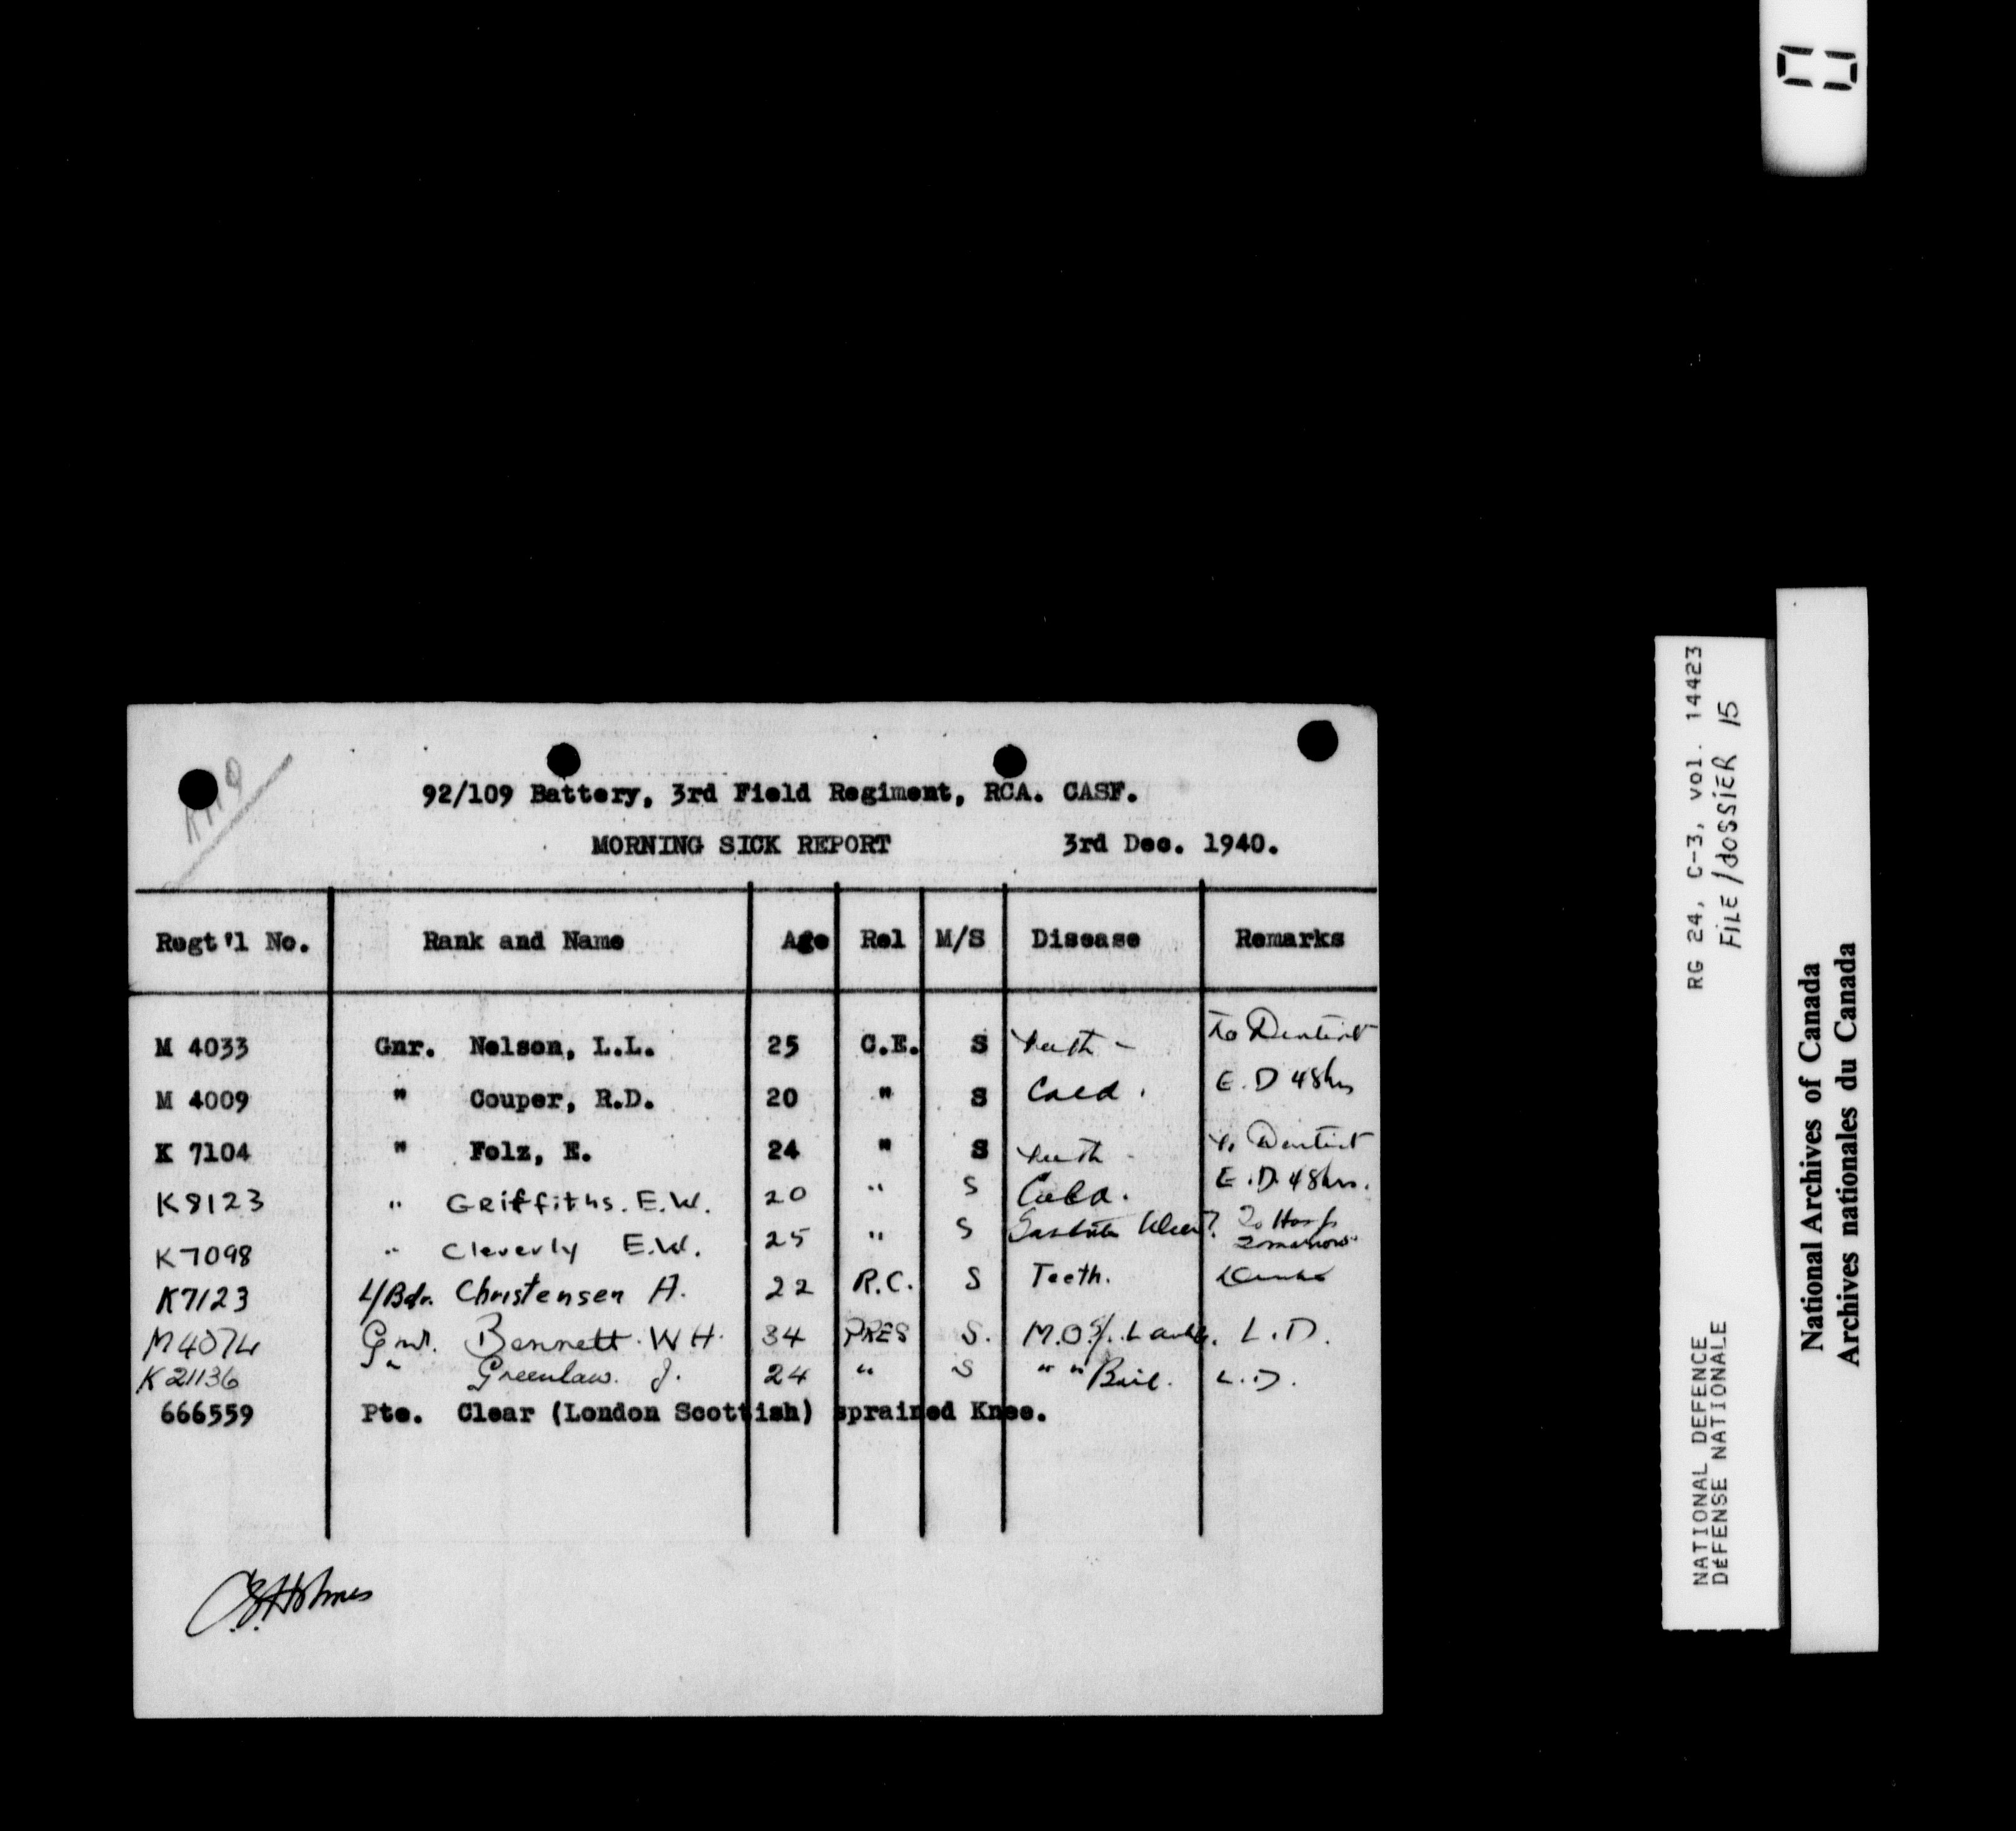 92/109 Battery, 3rd Field Regiment, RCA. CASF.
MORNING SICK REPORT 3rd Dec. 1940.
Regt'l No. Rank and Name Age Rel M/S Disease Remarks
M 4033 Gnr. Nelson, L.L. 25 C.E. S teeth - to Dentist
M 4009 " Couper, R.D. 20 " S Cold. E.D 48hrs
K 7104 " Folz, E. 24 " S teeth - to Dentist
K8123 " Griffiths. E.W. 20 " S Cold. E.D. 48hrs.
K7098 " Cleverly E.W. 25 " S Gastric Ulcer? To Hosp tomorrow
K7123 L/Bdr. Christensen A. 22 R.C. S Teeth.
M4074 Gnr. Bennett. W H. 34 PRES S. M.O's/. L.D.
K21136 " Greenlaw. J. 24 " S " " Boil. L.D.
666559 Pte. Clear (London Scottish) sprained Knee.
C.G.Holmes
RG 24, C-3, vol. 14423
FILE/dOSSiER 15
NATIONAL DEFENCE
DÉFENSE NATIONALE
National Archives of Canada
Archives nationales du Canada